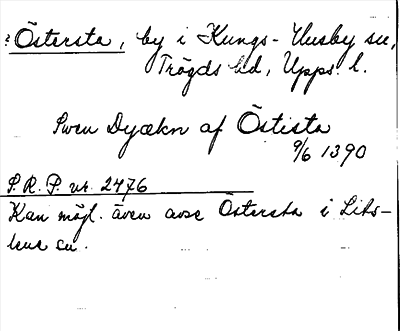 ? Östersta, by i Kungs-Husby sn,
Trögds hd, Upps. l.
Swen Dyækn af Östista
9/6 1390
S.R.P. nr. 2476
Kan möjl. även avse Östersta i Lits-
lena sn.